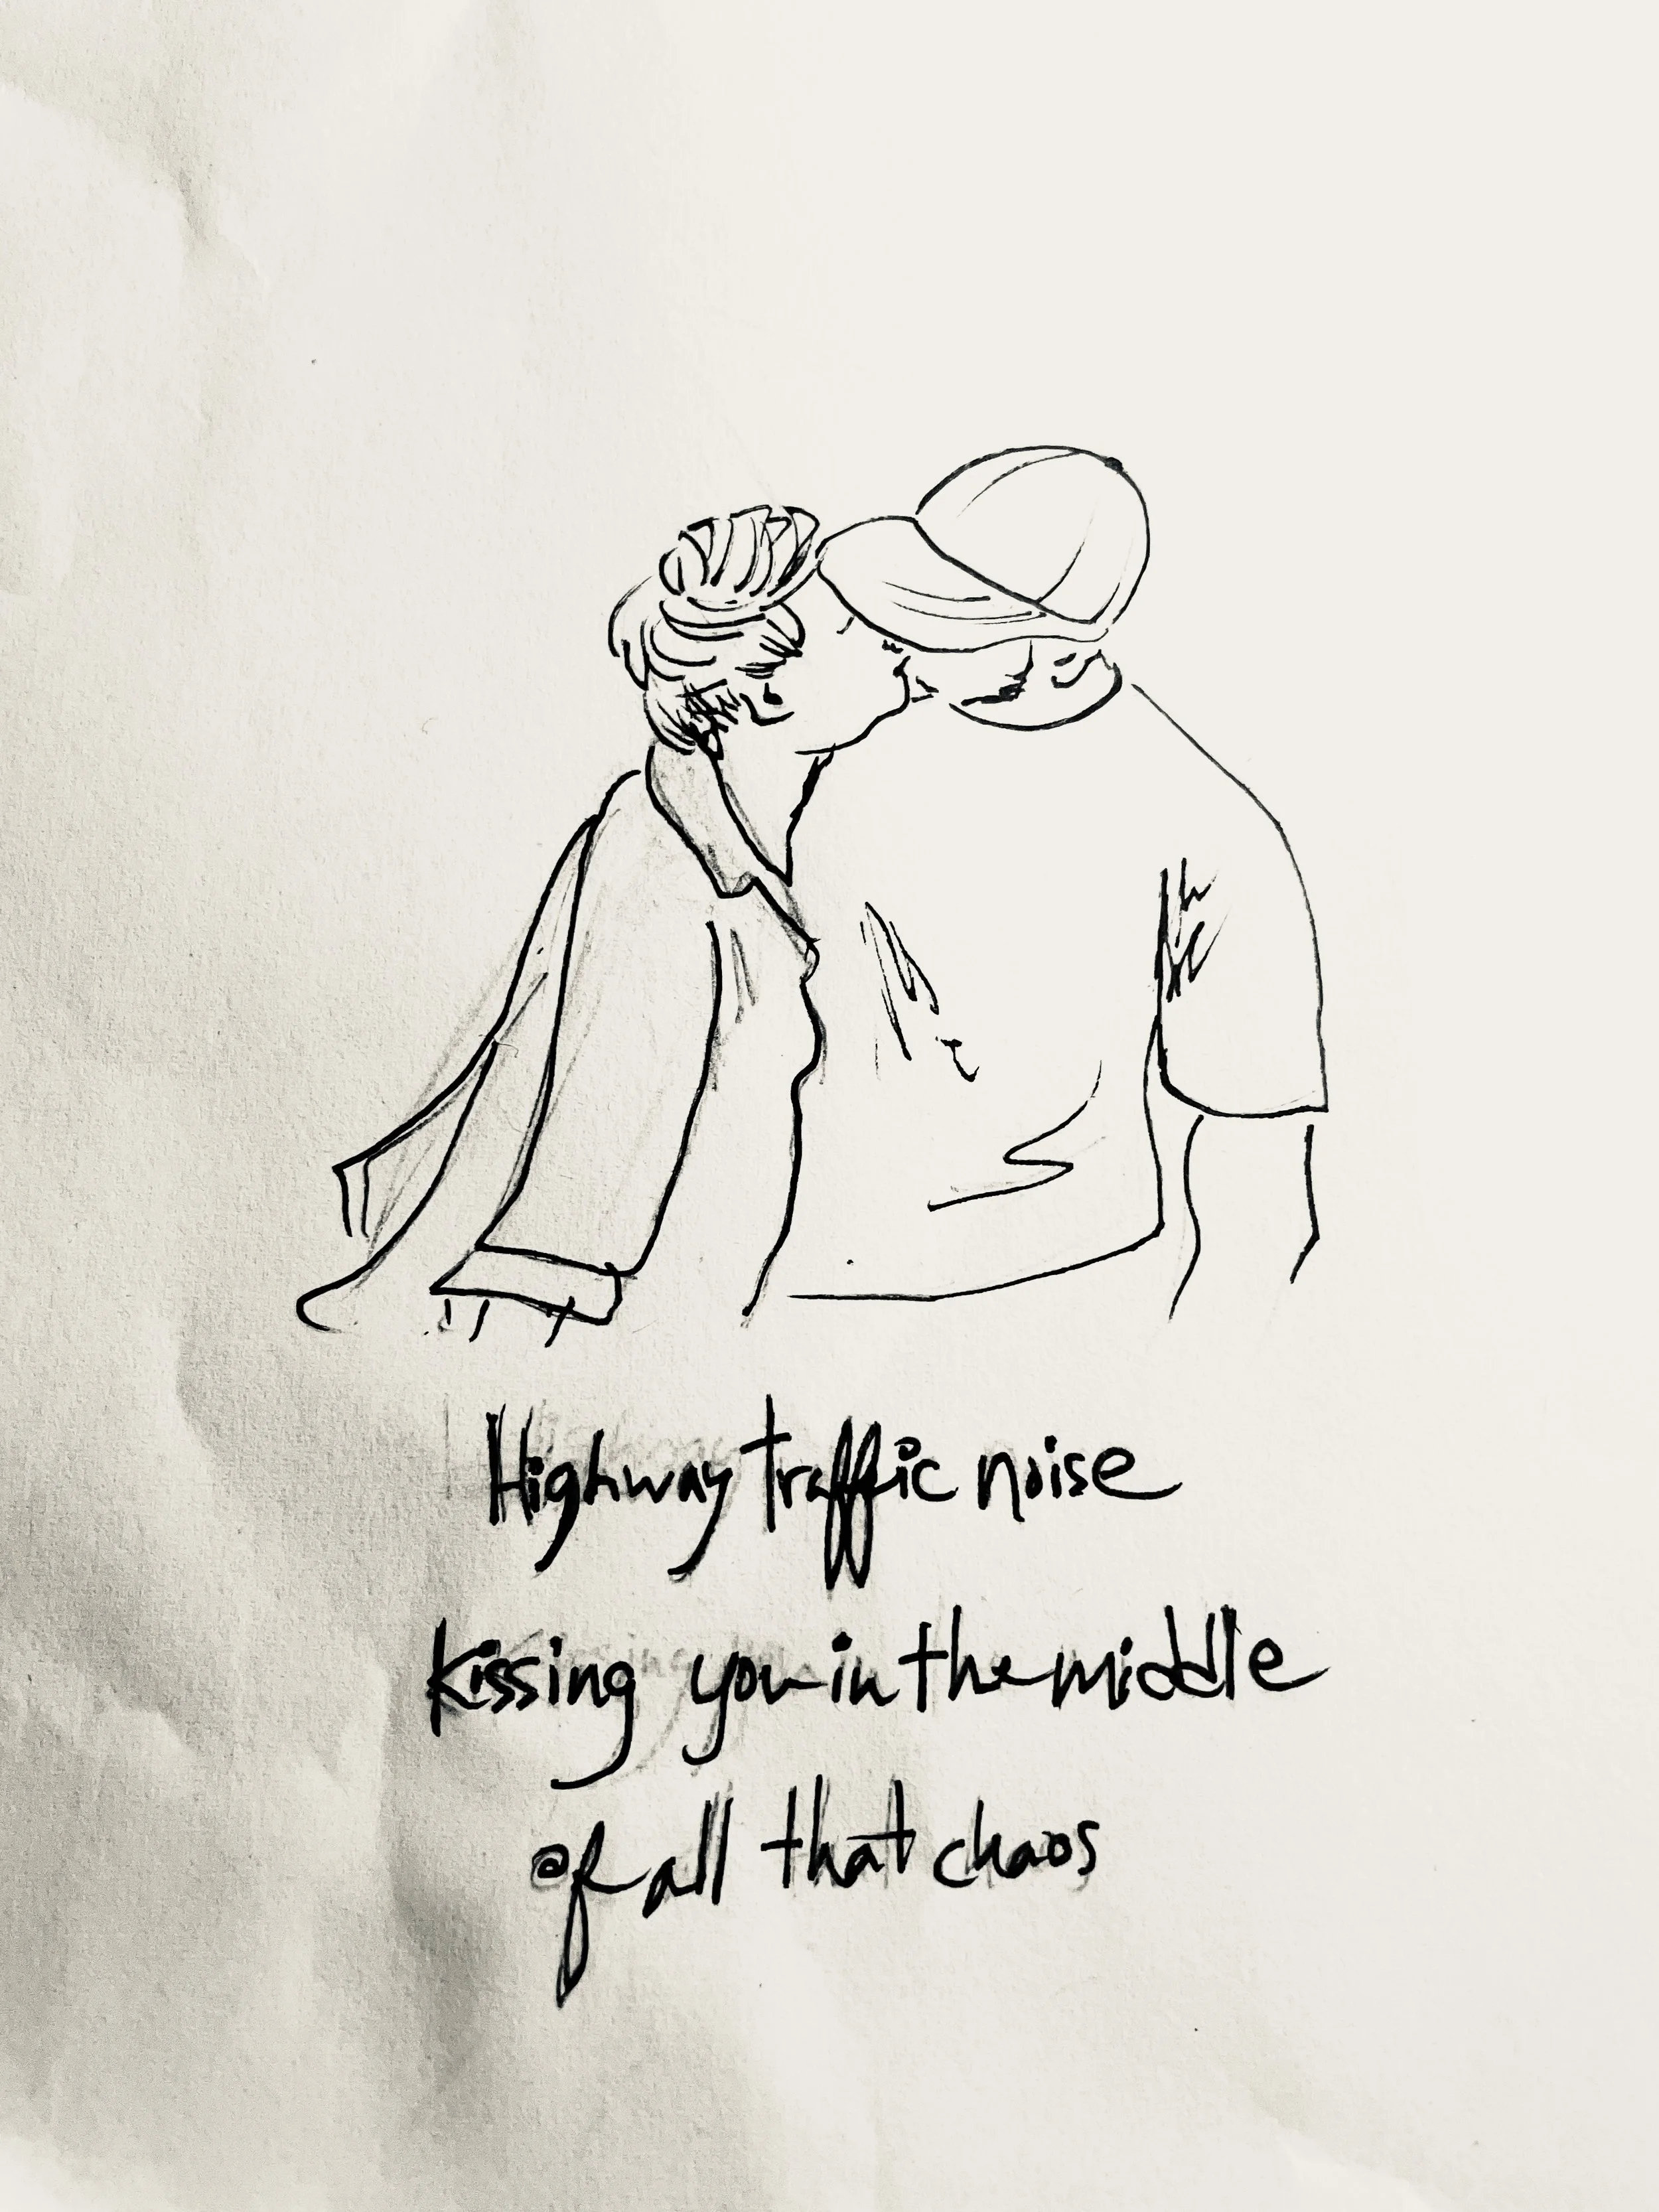 Highway traffic noise
kissing you in the middle
of all that chaos